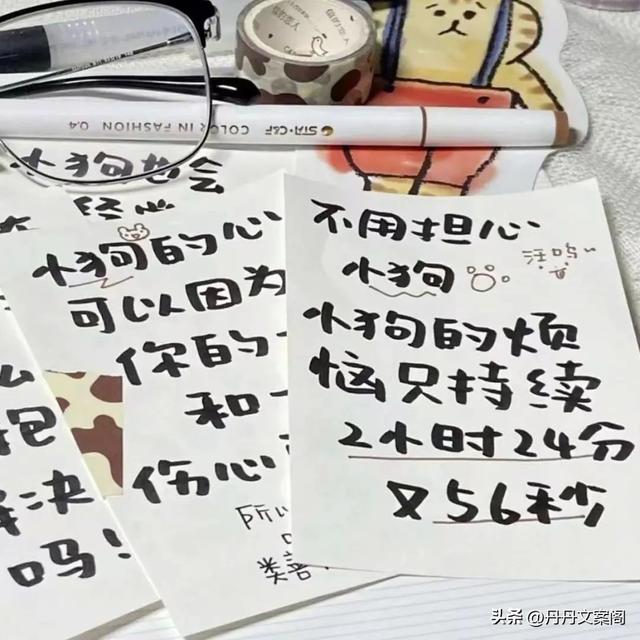 STA·C&F COLOR IN FASHION 0.4
小狗也会
小狗的心
可以因为
你的一
和一
伤心
所以
么
抱
决
吗!
不用担心
小狗 汪呜
小狗的烦
恼只持续
2小时24分
又56秒
头条 @丹丹文案阁